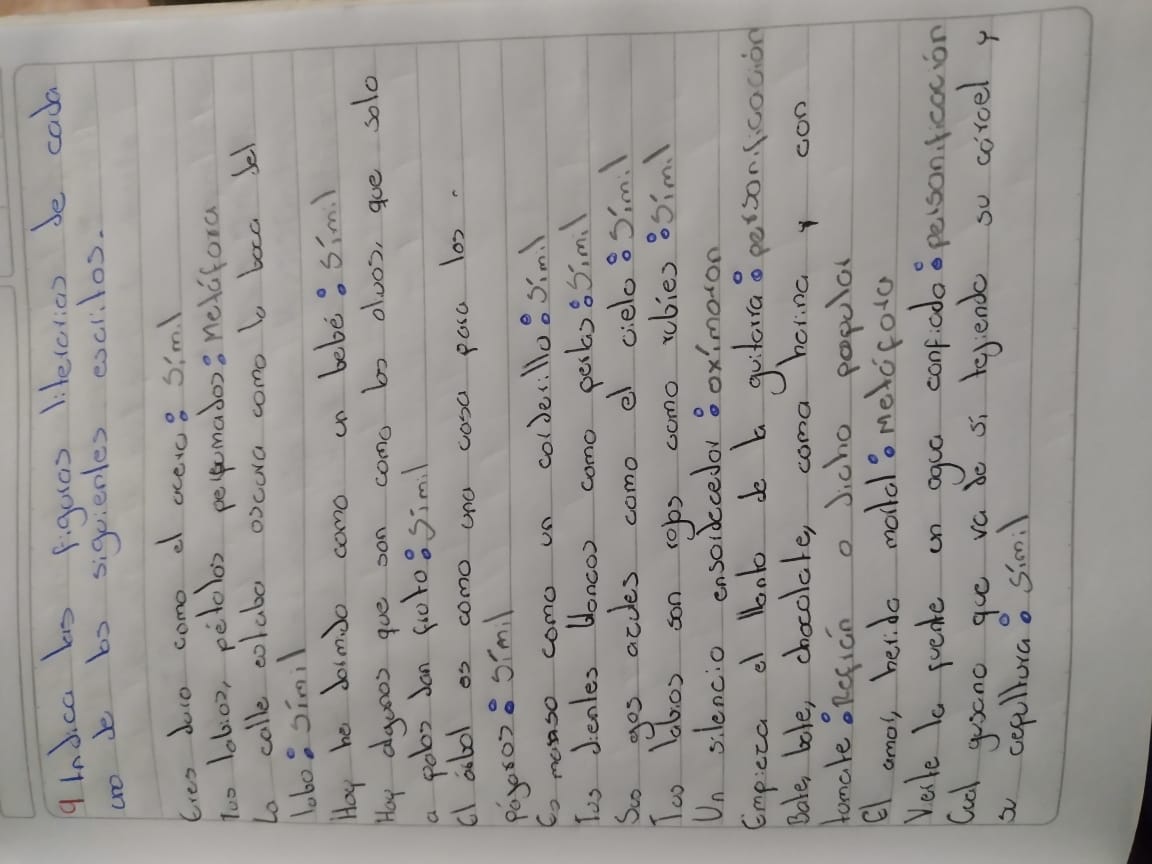 9 Indica las figuras literarias de cada
uno de los siguientes escritos.
Eres duro como el acero: Símil
Tus labios, pétalos perfumados: Metáfora
La calle estaba oscura como la boca del
lobo: Símil
Hoy he dormido como un bebé: Símil
Hay algunos que son como los olivos, que solo
a palos dan fruto: Símil
El árbol es como una casa para los
pájaros: Símil
Es manso como un corderillo: Símil
Tus dientes blancos como perlas: Símil
Sus ojos azules como el cielo: Símil
Tus labios son rojos como rubíes: Símil
Un silencio ensordecedor: oxímoron
Empieza el llanto de la guitarra: personificación
Bate, bate, chocolate, coma harina y con
tomate: Refrán o dicho popular
El amor, herida mortal: Metáfora
Vierte la fuente un agua confiada: personificación
Cual gusano que va de sí tejiendo su cárcel y
su cepultura: Símil